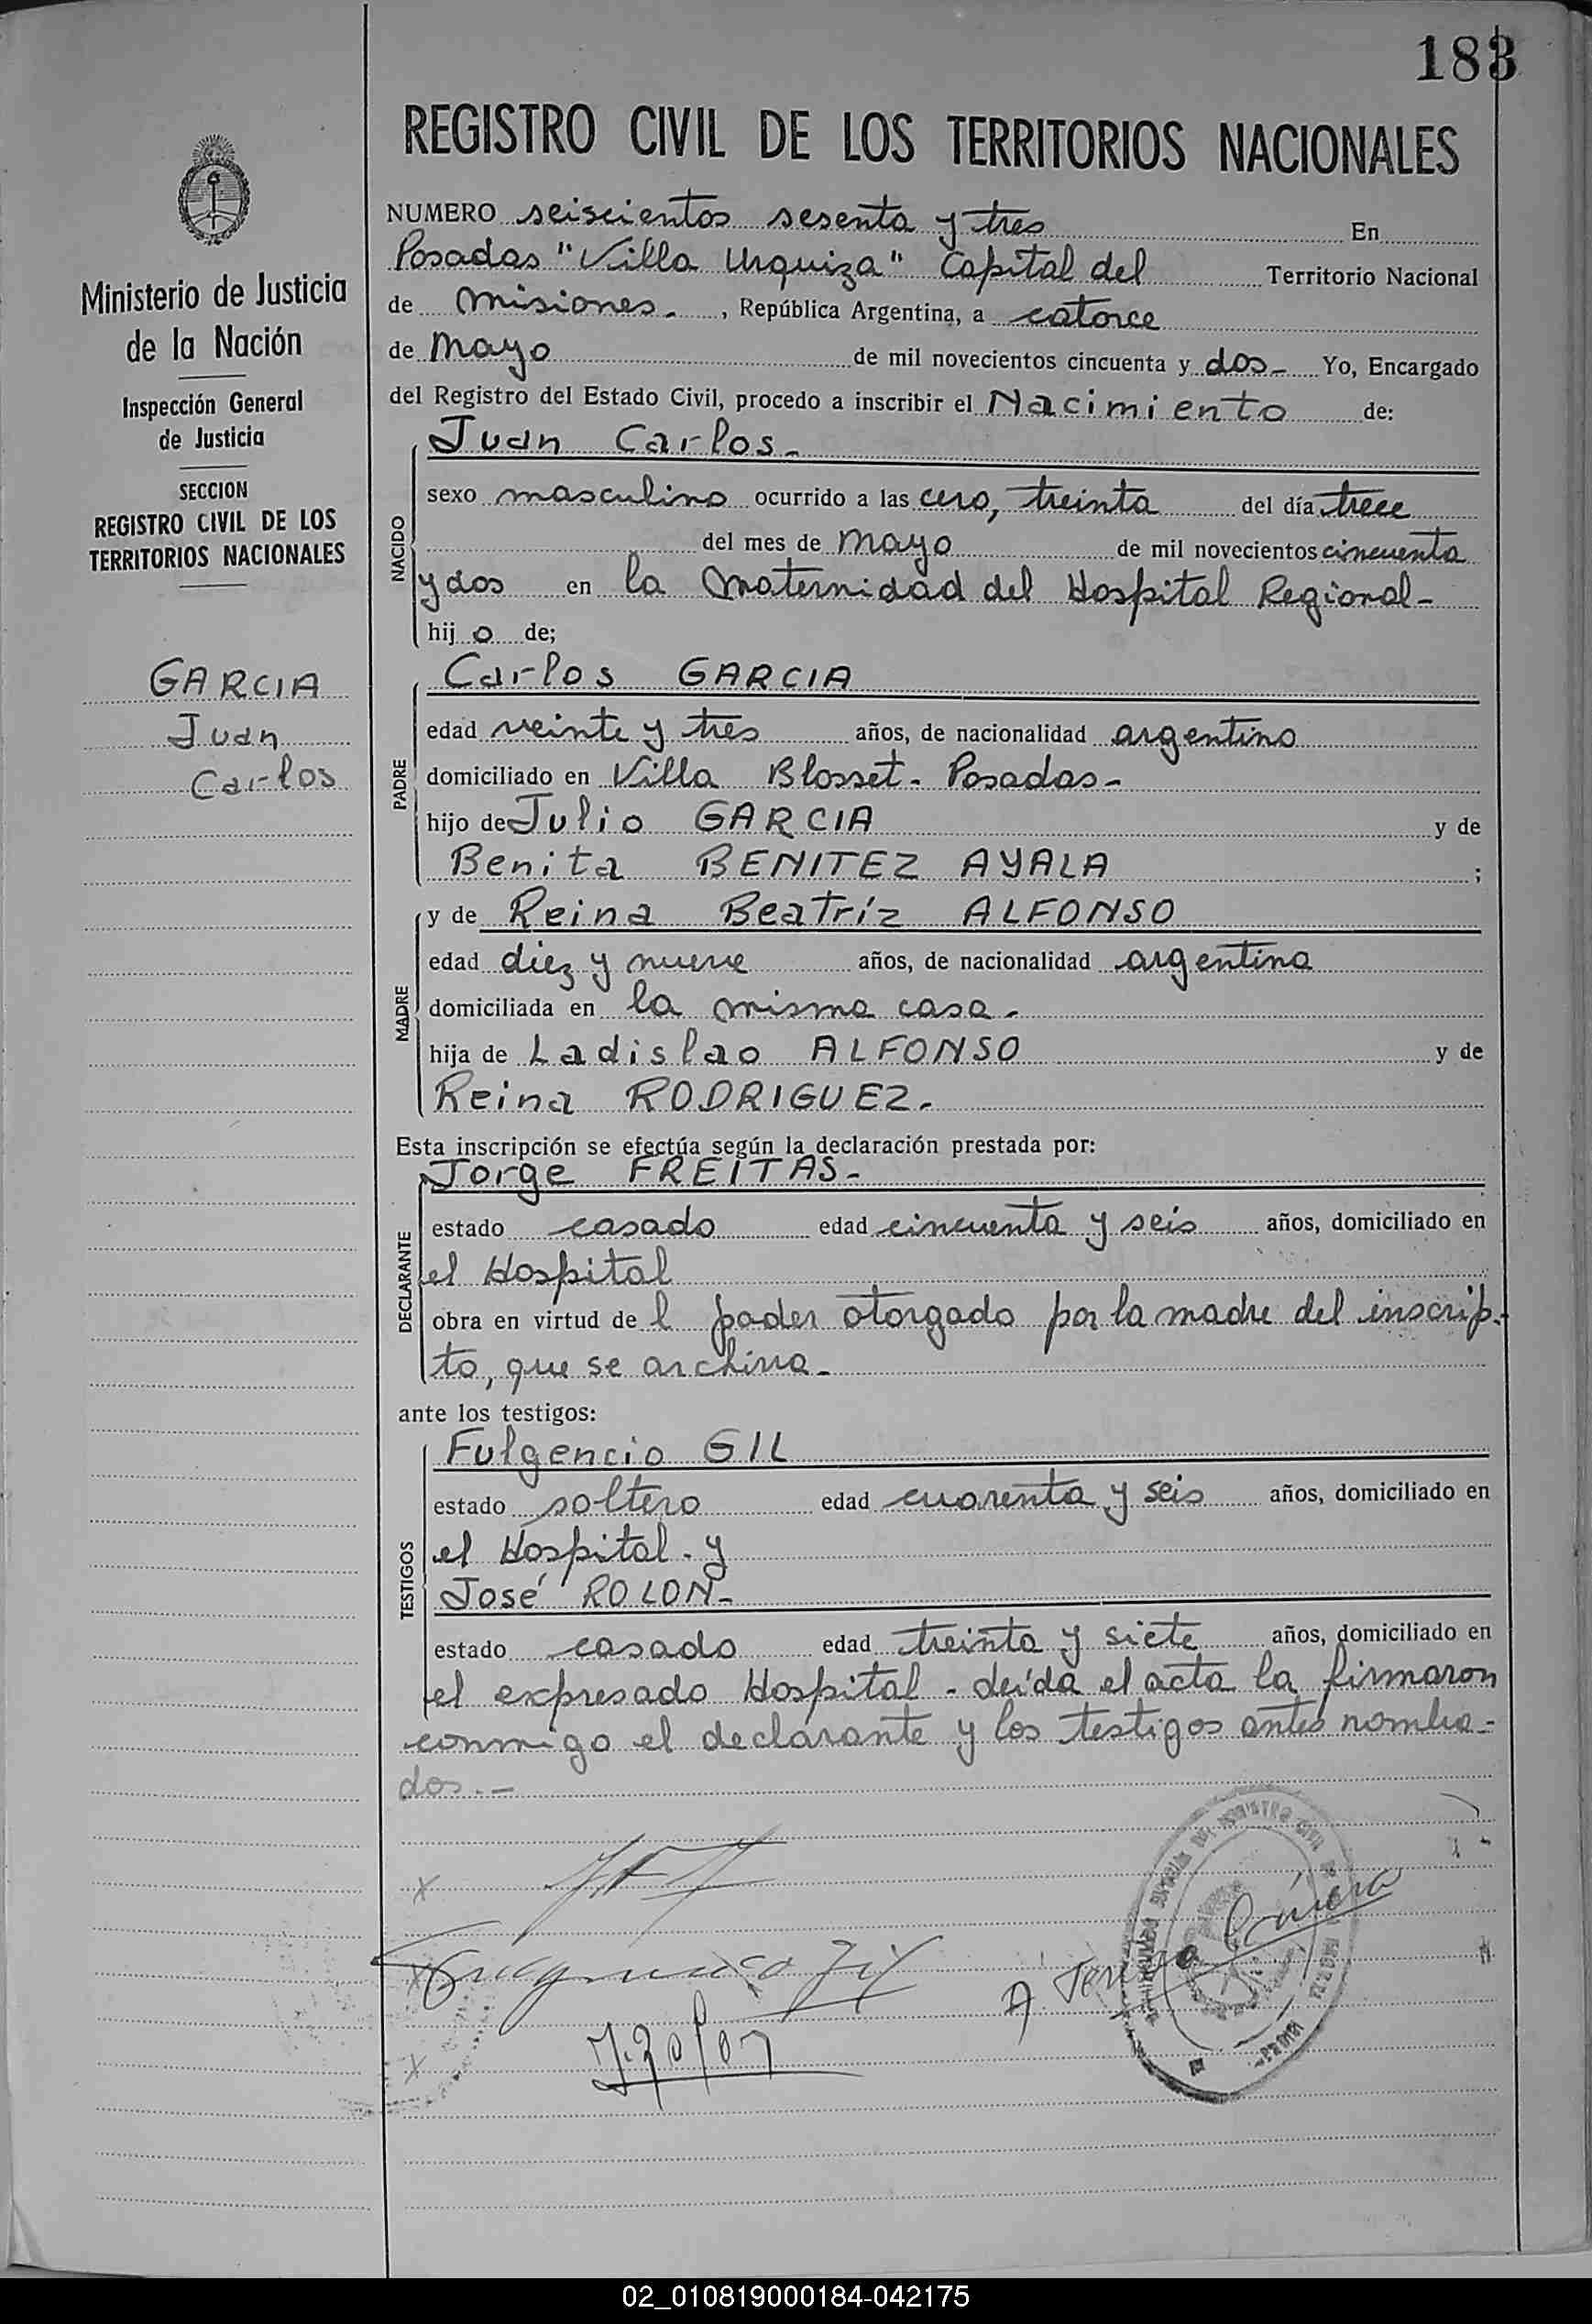 183
REGISTRO CIVIL DE LOS TERRITORIOS NACIONALES
Ministerio de Justicia
de la Nación
Inspección General
de Justicia
SECCION
REGISTRO CIVIL DE LOS
TERRITORIOS NACIONALES
GARCIA
Juan
Carlos
NUMERO seiscientos sesenta y tres En
Posadas "Villa Urquiza" Capital del Territorio Nacional
de Misiones. , República Argentina, a catorce
de Mayo de mil novecientos cincuenta y dos- Yo, Encargado
del Registro del Estado Civil, procedo a inscribir el Nacimiento de:
Juan Carlos-
NACIDO
sexo masculino ocurrido a las cero, treinta del día trece
del mes de Mayo de mil novecientos cincuenta
y dos en la Maternidad del Hospital Regional-
hijo de;
Carlos GARCIA
PADRE
edad veinte y tres años, de nacionalidad argentino
domiciliado en Villa Blosset- Posadas-
hijo de Julio GARCIA y de
Benita BENITEZ AYALA ;
y de Reina Beatríz ALFONSO
MADRE
edad diez y nueve años, de nacionalidad argentina
domiciliada en la misma casa-
hija de Ladislao ALFONSO y de
Reina RODRIGUEZ.
Esta inscripción se efectúa según la declaración prestada por:
Jorge FREITAS-
DECLARANTE
estado casado edad cincuenta y seis años, domiciliado en
el Hospital
obra en virtud de l poder otorgado por la madre del inscrip-
to, que se archiva-
ante los testigos:
Fulgencio GIL
TESTIGOS
estado soltero edad cuarenta y seis años, domiciliado en
el Hospital. y
José ROLON-
estado casado edad treinta y siete años, domiciliado en
el expresado Hospital - Leída el acta la firmaron
conmigo el declarante y los testigos antes nombra-
dos.-
02_010819000184-042175